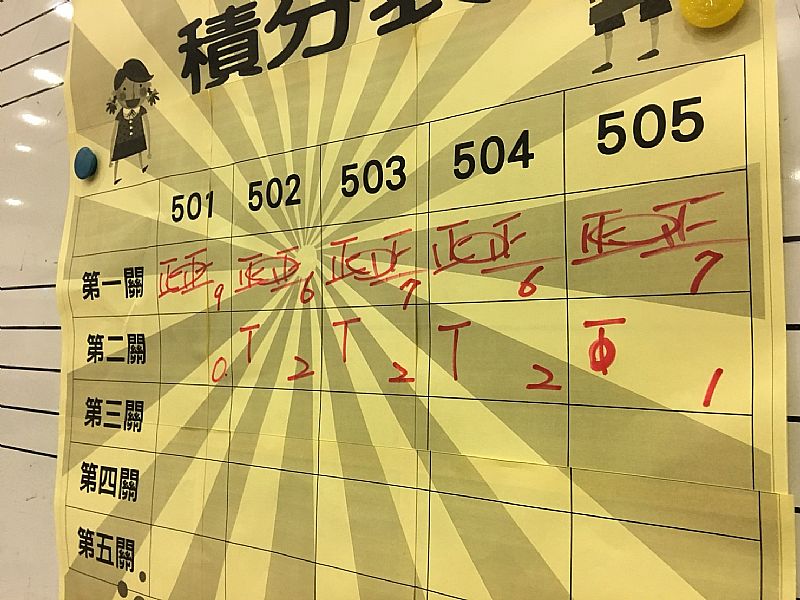 積分
501 502 503 504 505
第一關 正正 9 正正 6 正正 7 正正 6 正正 7
第二關 0 T 2 T 2 T 2 1
第三關
第四關
第五關